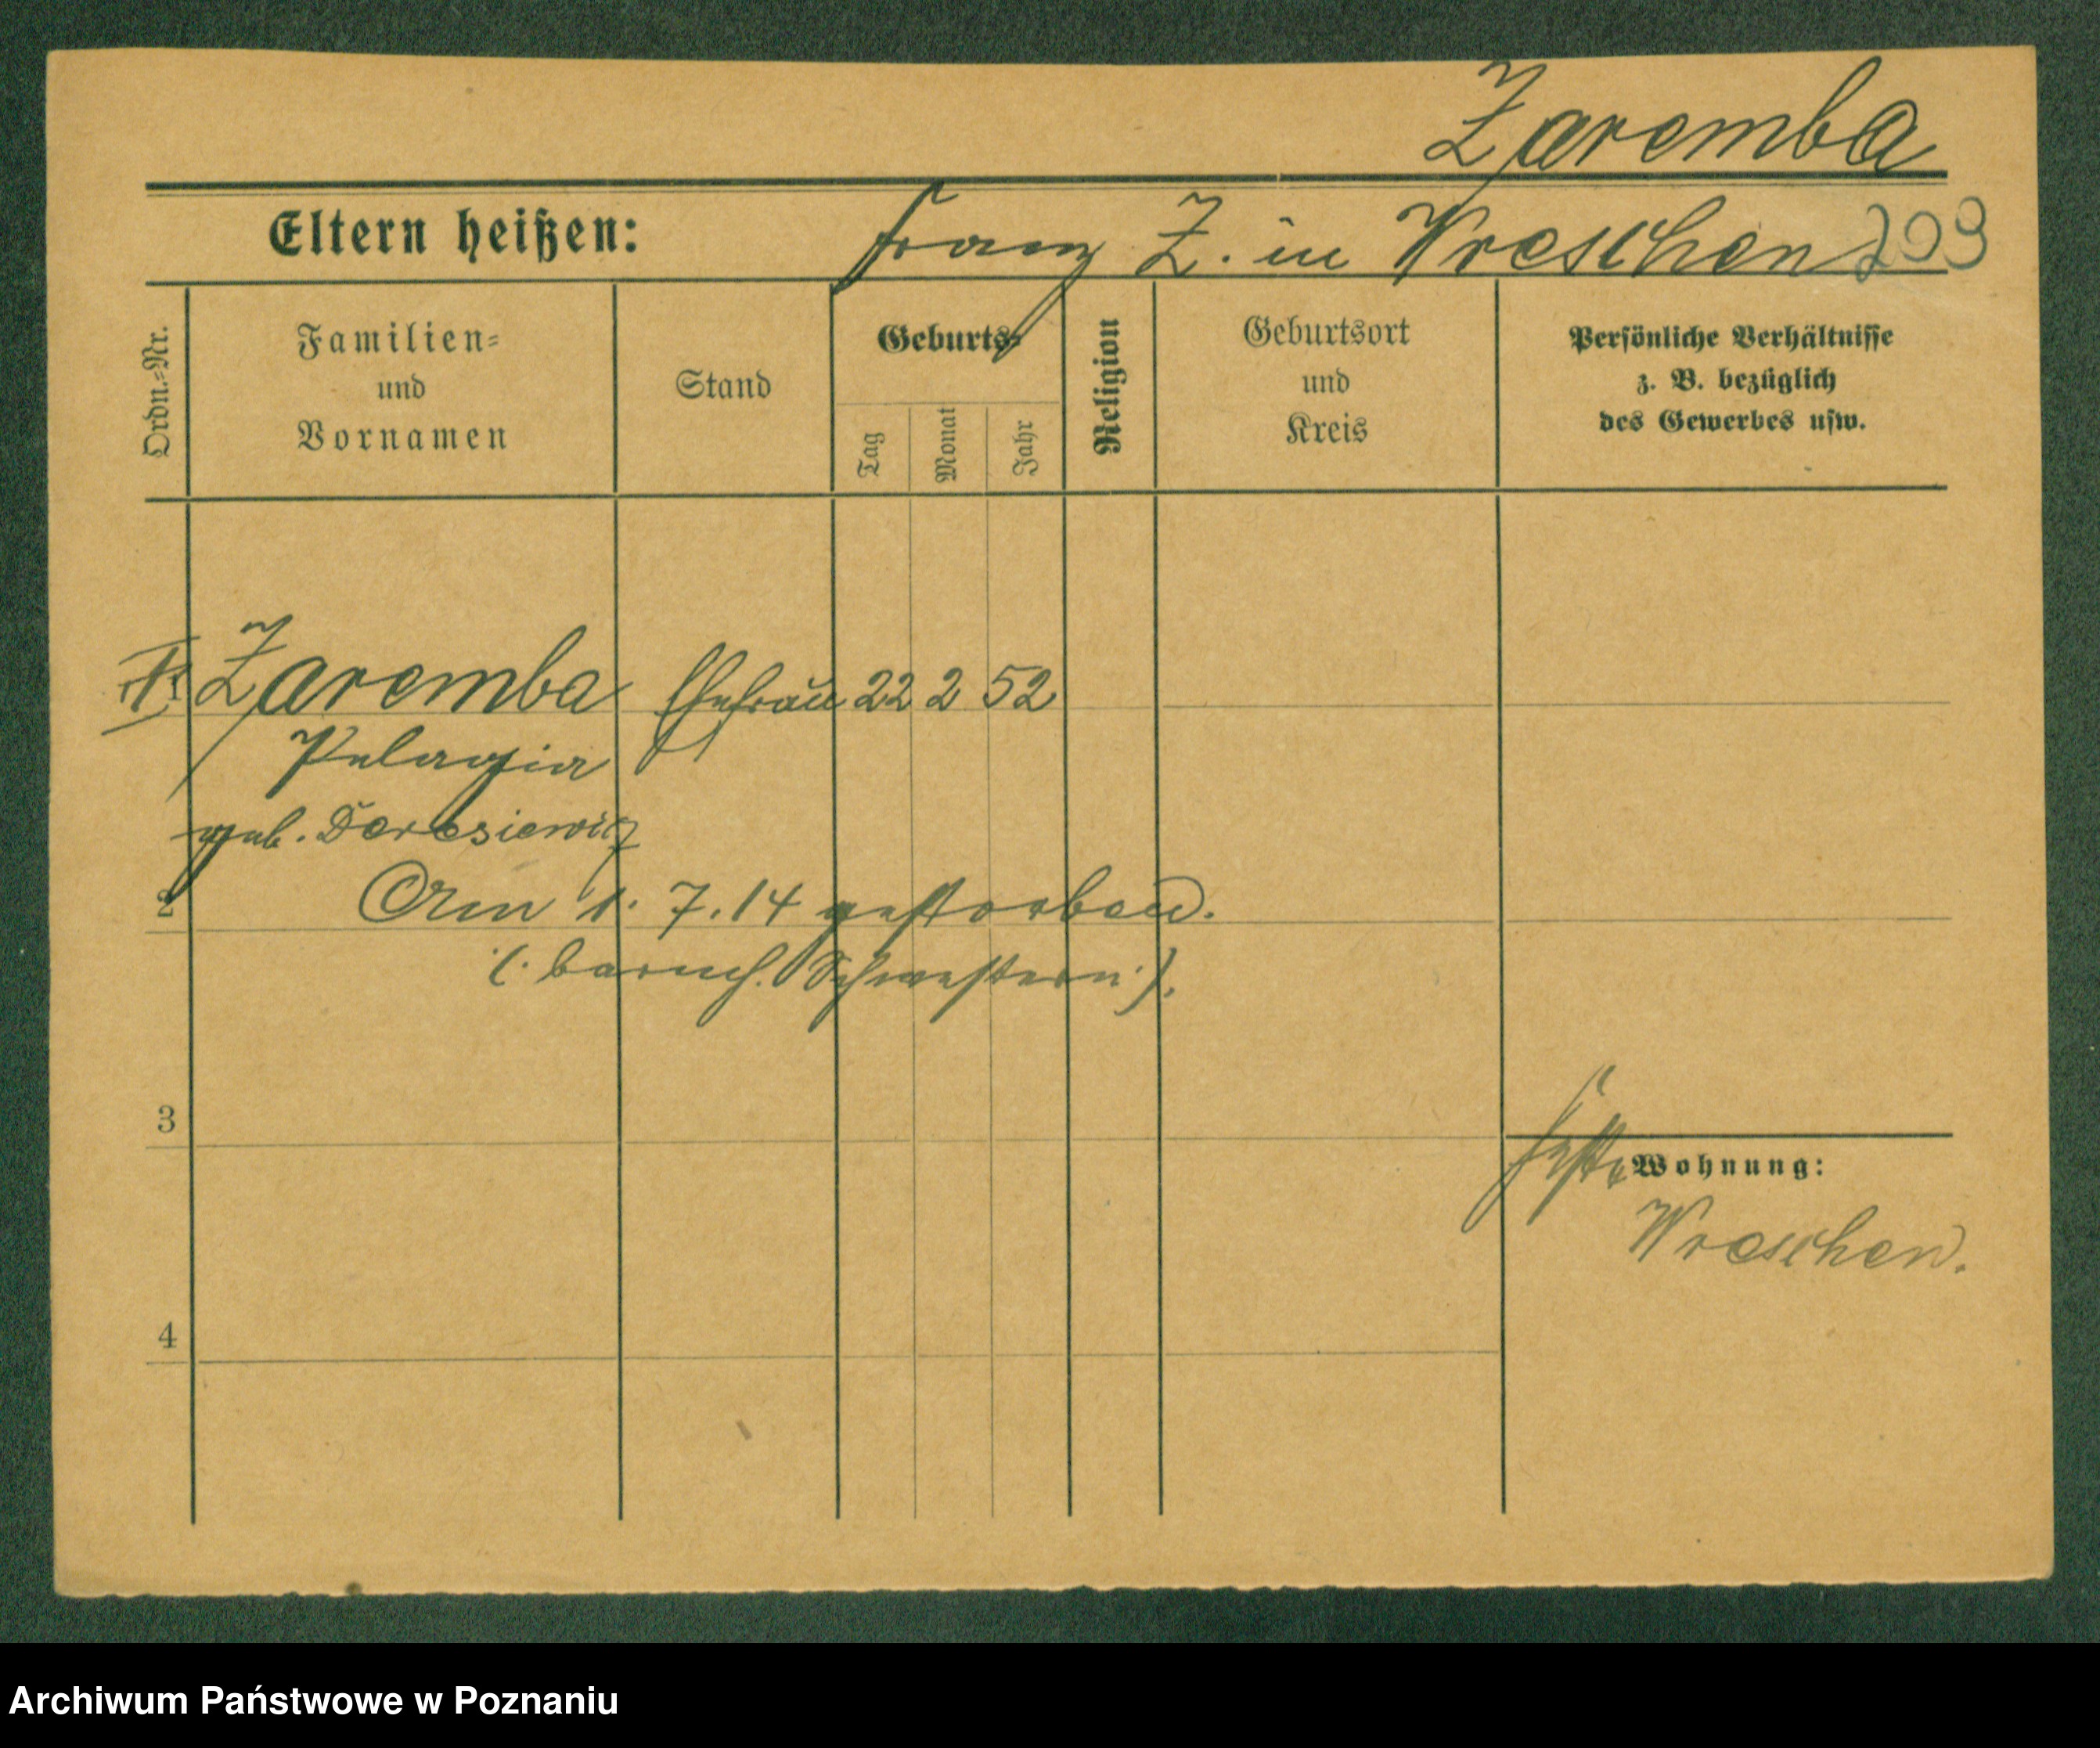 Zaremba
Eltern heißen: Franz Z. in Wreschen 209
Ordn.-Nr.
Familien-
und
Vornamen
Stand
Geburts-
Tag
Monat
Jahr
Religion
Geburtsort
und
Kreis
Persönliche Verhältnisse
z. B. bezüglich
des Gewerbes usw.
Zaremba Ehefrau 22 2 52
Pelagia
geb. Deresiewicz
2
Am 1. 7. 14 gestorben.
(: barmh. Schwestern :).
3
Wohnung:
Wreschen.
4
Archiwum Państwowe w Poznaniu